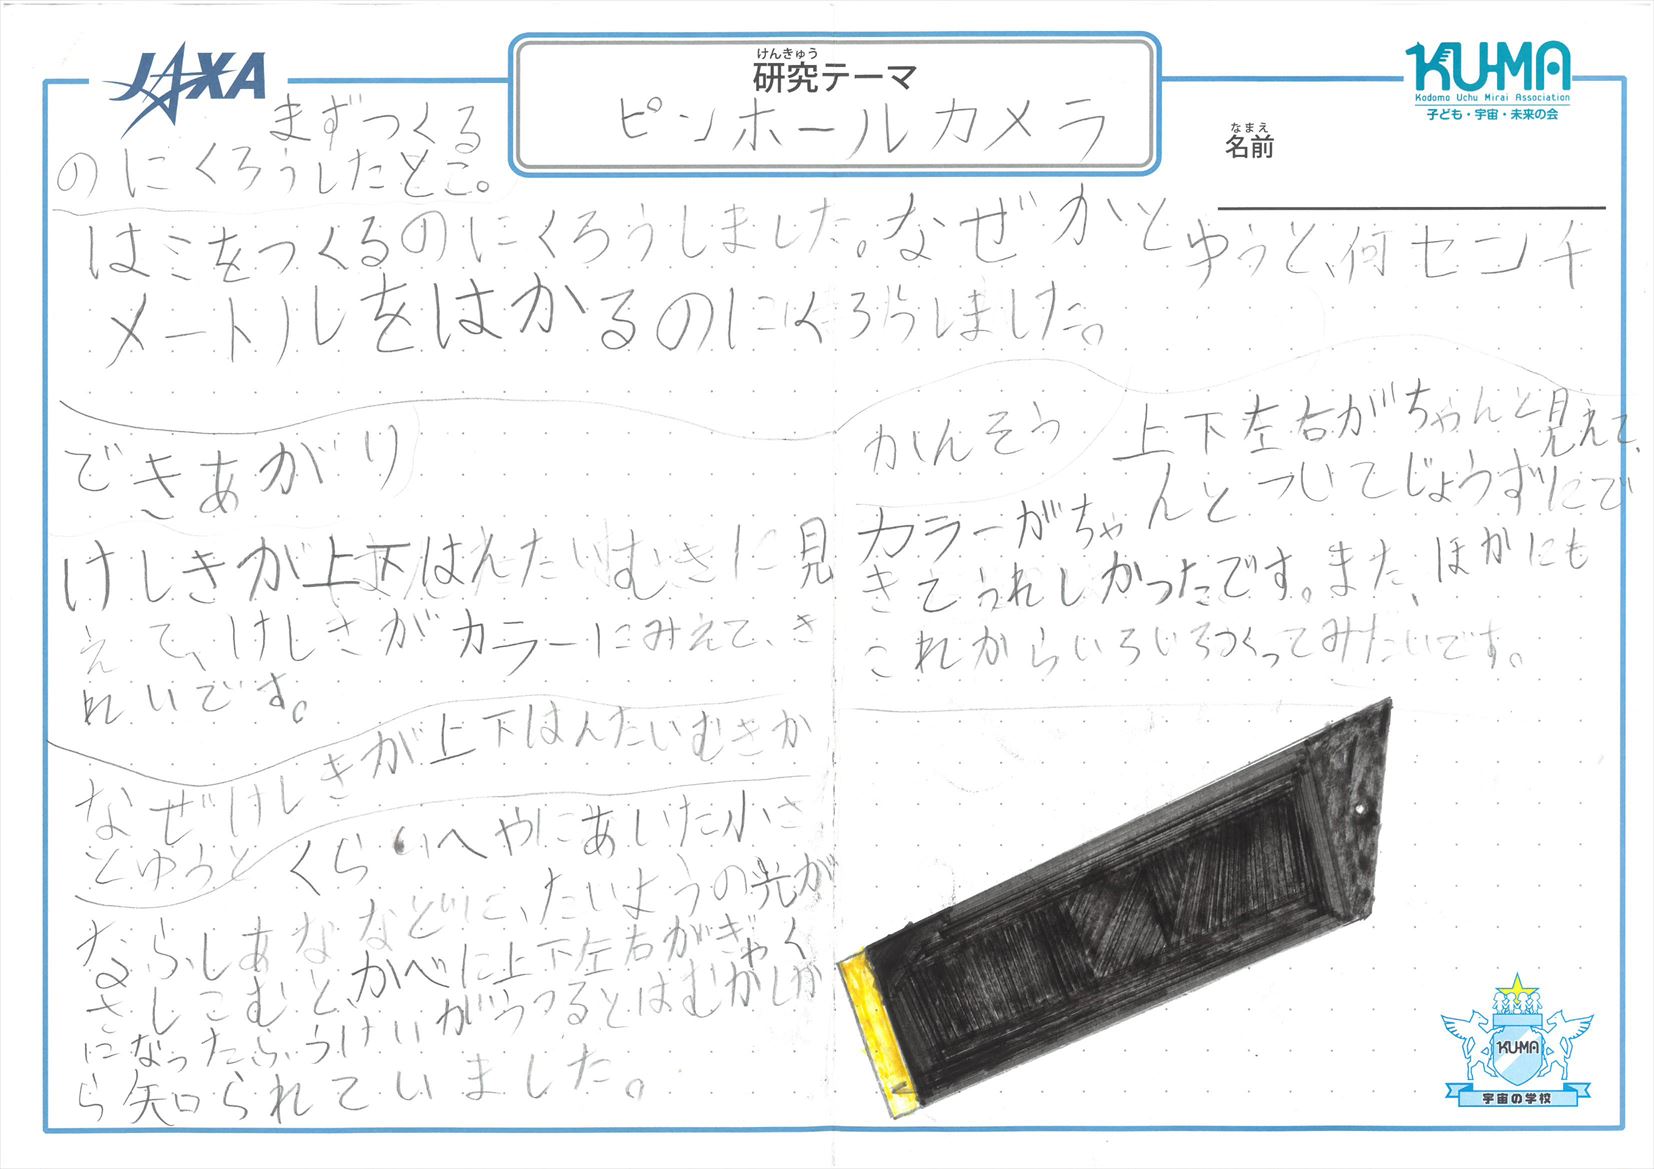 JAXA
けんきゅう
研究テーマ
ピンホールカメラ
KU-MA
Kodomo Uchu Mirai Association
子ども・宇宙・未来の会
なまえ
名前
まずつくる
のにくろうしたとこ。
はこをつくるのにくろうしました。なぜかとゆうと、何センチ
メートルをはかるのにくろうしました。
できあがり
けしきが上下はんたいむきに見
えて、けしきがカラーにみえて、き
れいです。
なぜけしきが上下はんたいむきか
とゆうと くらいへやにあいた小さ
ならしあななどに、たいようの光が
さしこむと、かべに上下左右がぎゃく
になったふうけいがうつるとはむかしか
ら知られていました。
かんそう
上下左右がちゃんと見えて、
カラーがちゃんとついてじょうずにで
きてうれしかったです。また、ほかにも
これからいろいろつくってみたいです。
KU-MA
宇宙の学校